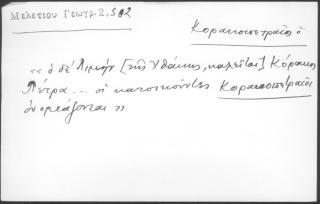 Μελετίου Γεωγρ. 2, 502
Κορακοπετραῖος ὁ
« ὁ δέ Λιμήν [τῆς Ἰθάκης, καλεῖται] Κόρακος
Πέτρα ... οἱ κατοικοῦντες Κορακοπετραῖοι
ὀνομάζονται »